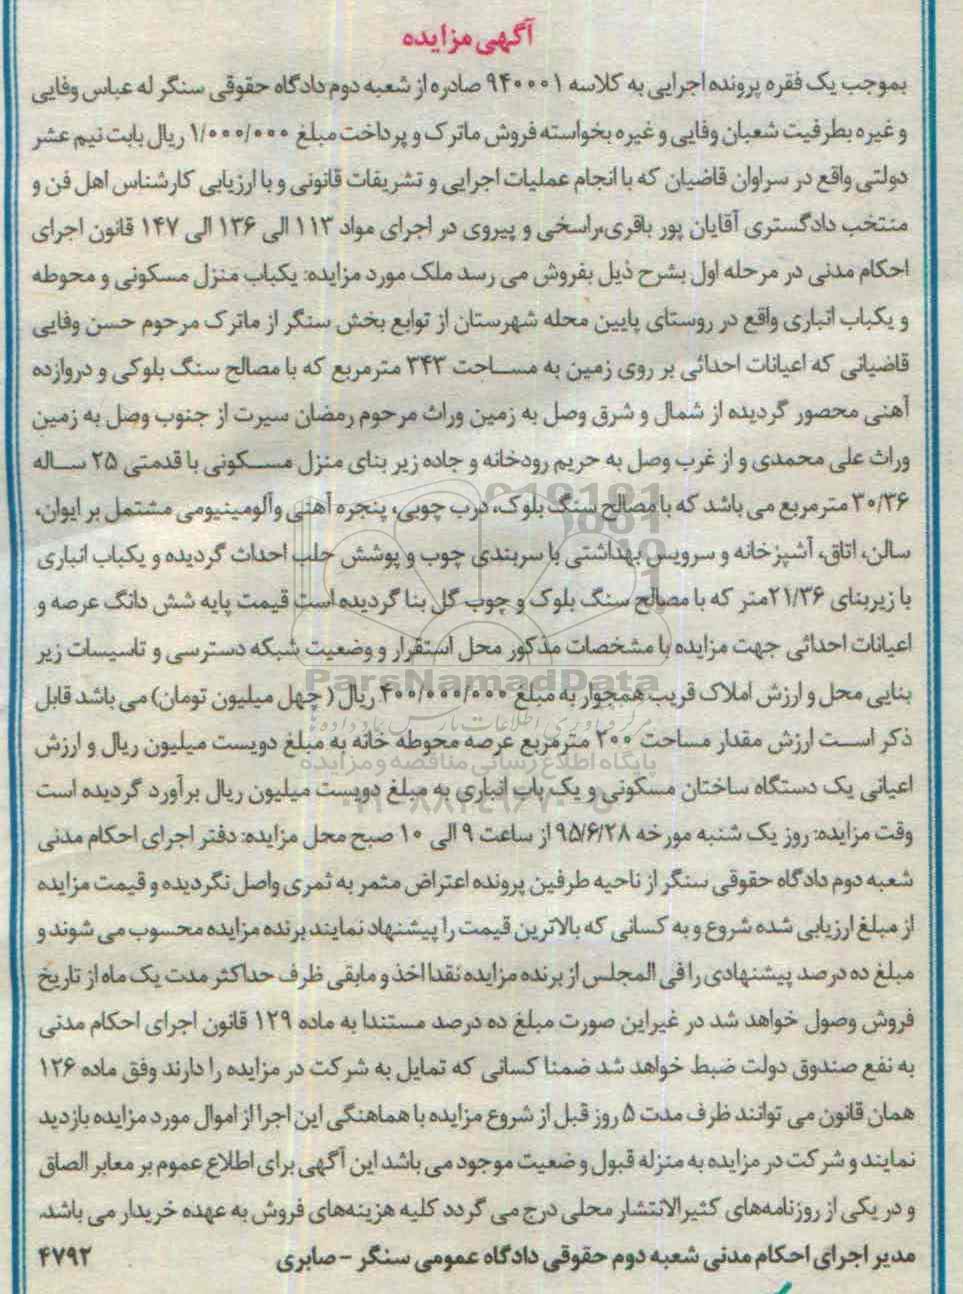 آگهی مزایده
بموجب یک فقره پرونده اجرایی به کلاسه ۹۴۰۰۰۱ صادره از شعبه دوم دادگاه حقوقی سنگر له عباس وفایی
و غیره بطرفیت شعبان وفایی و غیره بخواسته فروش ماترک و پرداخت مبلغ ۱/۰۰۰/۰۰۰ ریال بابت نیم عشر
دولتی واقع در سراوان قاضیان که با انجام عملیات اجرایی و تشریفات قانونی و با ارزیابی کارشناس اهل فن و
منتخب دادگستری آقایان پور باقری،راسخی و پیروی در اجرای مواد ۱۱۳ الی ۱۳۶ الی ۱۴۷ قانون اجرای
احکام مدنی در مرحله اول بشرح ذیل بفروش می رسد ملک مورد مزایده: یکباب منزل مسکونی و محوطه
و یکباب انباری واقع در روستای پایین محله شهرستان از توابع بخش سنگر از ماترک مرحوم حسن وفایی
قاضیانی که اعیانات احداثی بر روی زمین به مساحت ۳۴۳ مترمربع که با مصالح سنگ بلوکی و دروازده
آهنی محصور گردیده از شمال و شرق وصل به زمین وراث مرحوم رمضان سیرت از جنوب وصل به زمین
وراث علی محمدی و از غرب وصل به حریم رودخانه و جاده زیر بنای منزل مسکونی با قدمتی ۲۵ ساله
۳۰/۳۶ مترمربع می باشد که با مصالح سنگ بلوک، درب چوبی، پنجره آهنی وآلومینیومی مشتمل بر ایوان،
سالن، اتاق، آشپزخانه و سرویس بهداشتی با سربندی چوب و پوشش حلب احداث گردیده و یکباب انباری
با زیربنای ۲۱/۳۶متر که با مصالح سنگ بلوک و چوب گل بنا گردیده است قیمت پایه شش دانگ عرصه و
اعیانات احداثی جهت مزایده با مشخصات مذکور محل استقرار و وضعیت شبکه دسترسی و تاسیسات زیر
بنایی محل و ارزش املاک قریب همجوار به مبلغ ۴۰۰/۰۰۰/۰۰۰ ریال ( چهل میلیون تومان) می باشد قابل
ذکر است ارزش مقدار مساحت ۲۰۰ مترمربع عرصه محوطه خانه به مبلغ دویست میلیون ریال و ارزش
اعیانی یک دستگاه ساختان مسکونی و یک باب انباری به مبلغ دویست میلیون ریال برآورد گردیده است
وقت مزایده: روز یک شنبه مورخه ۹۵/۶/۲۸ از ساعت ۹ الی ۱۰ صبح محل مزایده: دفتر اجرای احکام مدنی
شعبه دوم دادگاه حقوقی سنگر از ناحیه طرفین پرونده اعتراض مثمر به ثمری واصل نگردیده و قیمت مزایده
از مبلغ ارزیابی شده شروع و به کسانی که بالاترین قیمت را پیشنهاد نمایند برنده مزایده محسوب می شوند و
مبلغ ده درصد پیشنهادی را فی المجلس از برنده مزایده نقدا اخذ و مابقی ظرف حداکثر مدت یک ماه از تاریخ
فروش وصول خواهد شد در غیراین صورت مبلغ ده درصد مستندا به ماده ۱۲۹ قانون اجرای احکام مدنی
به نفع صندوق دولت ضبط خواهد شد ضمنا کسانی که تمایل به شرکت در مزایده را دارند وفق ماده ۱۲۶
همان قانون می توانند ظرف مدت ۵ روز قبل از شروع مزایده با هماهنگی این اجرا از اموال مورد مزایده بازدید
نمایند و شرکت در مزایده به منزله قبول وضعیت موجود می باشد این آگهی برای اطلاع عموم بر معابر الصاق
و در یکی از روزنامه‌های کثیرالانتشار محلی درج می گردد کلیه هزینه‌های فروش به عهده خریدار می باشد.
مدیر اجرای احکام مدنی شعبه دوم حقوقی دادگاه عمومی سنگر - صابری ۴۷۹۲
ParsNamadData
پایگاه اطلاع رسانی مناقصه و مزایده